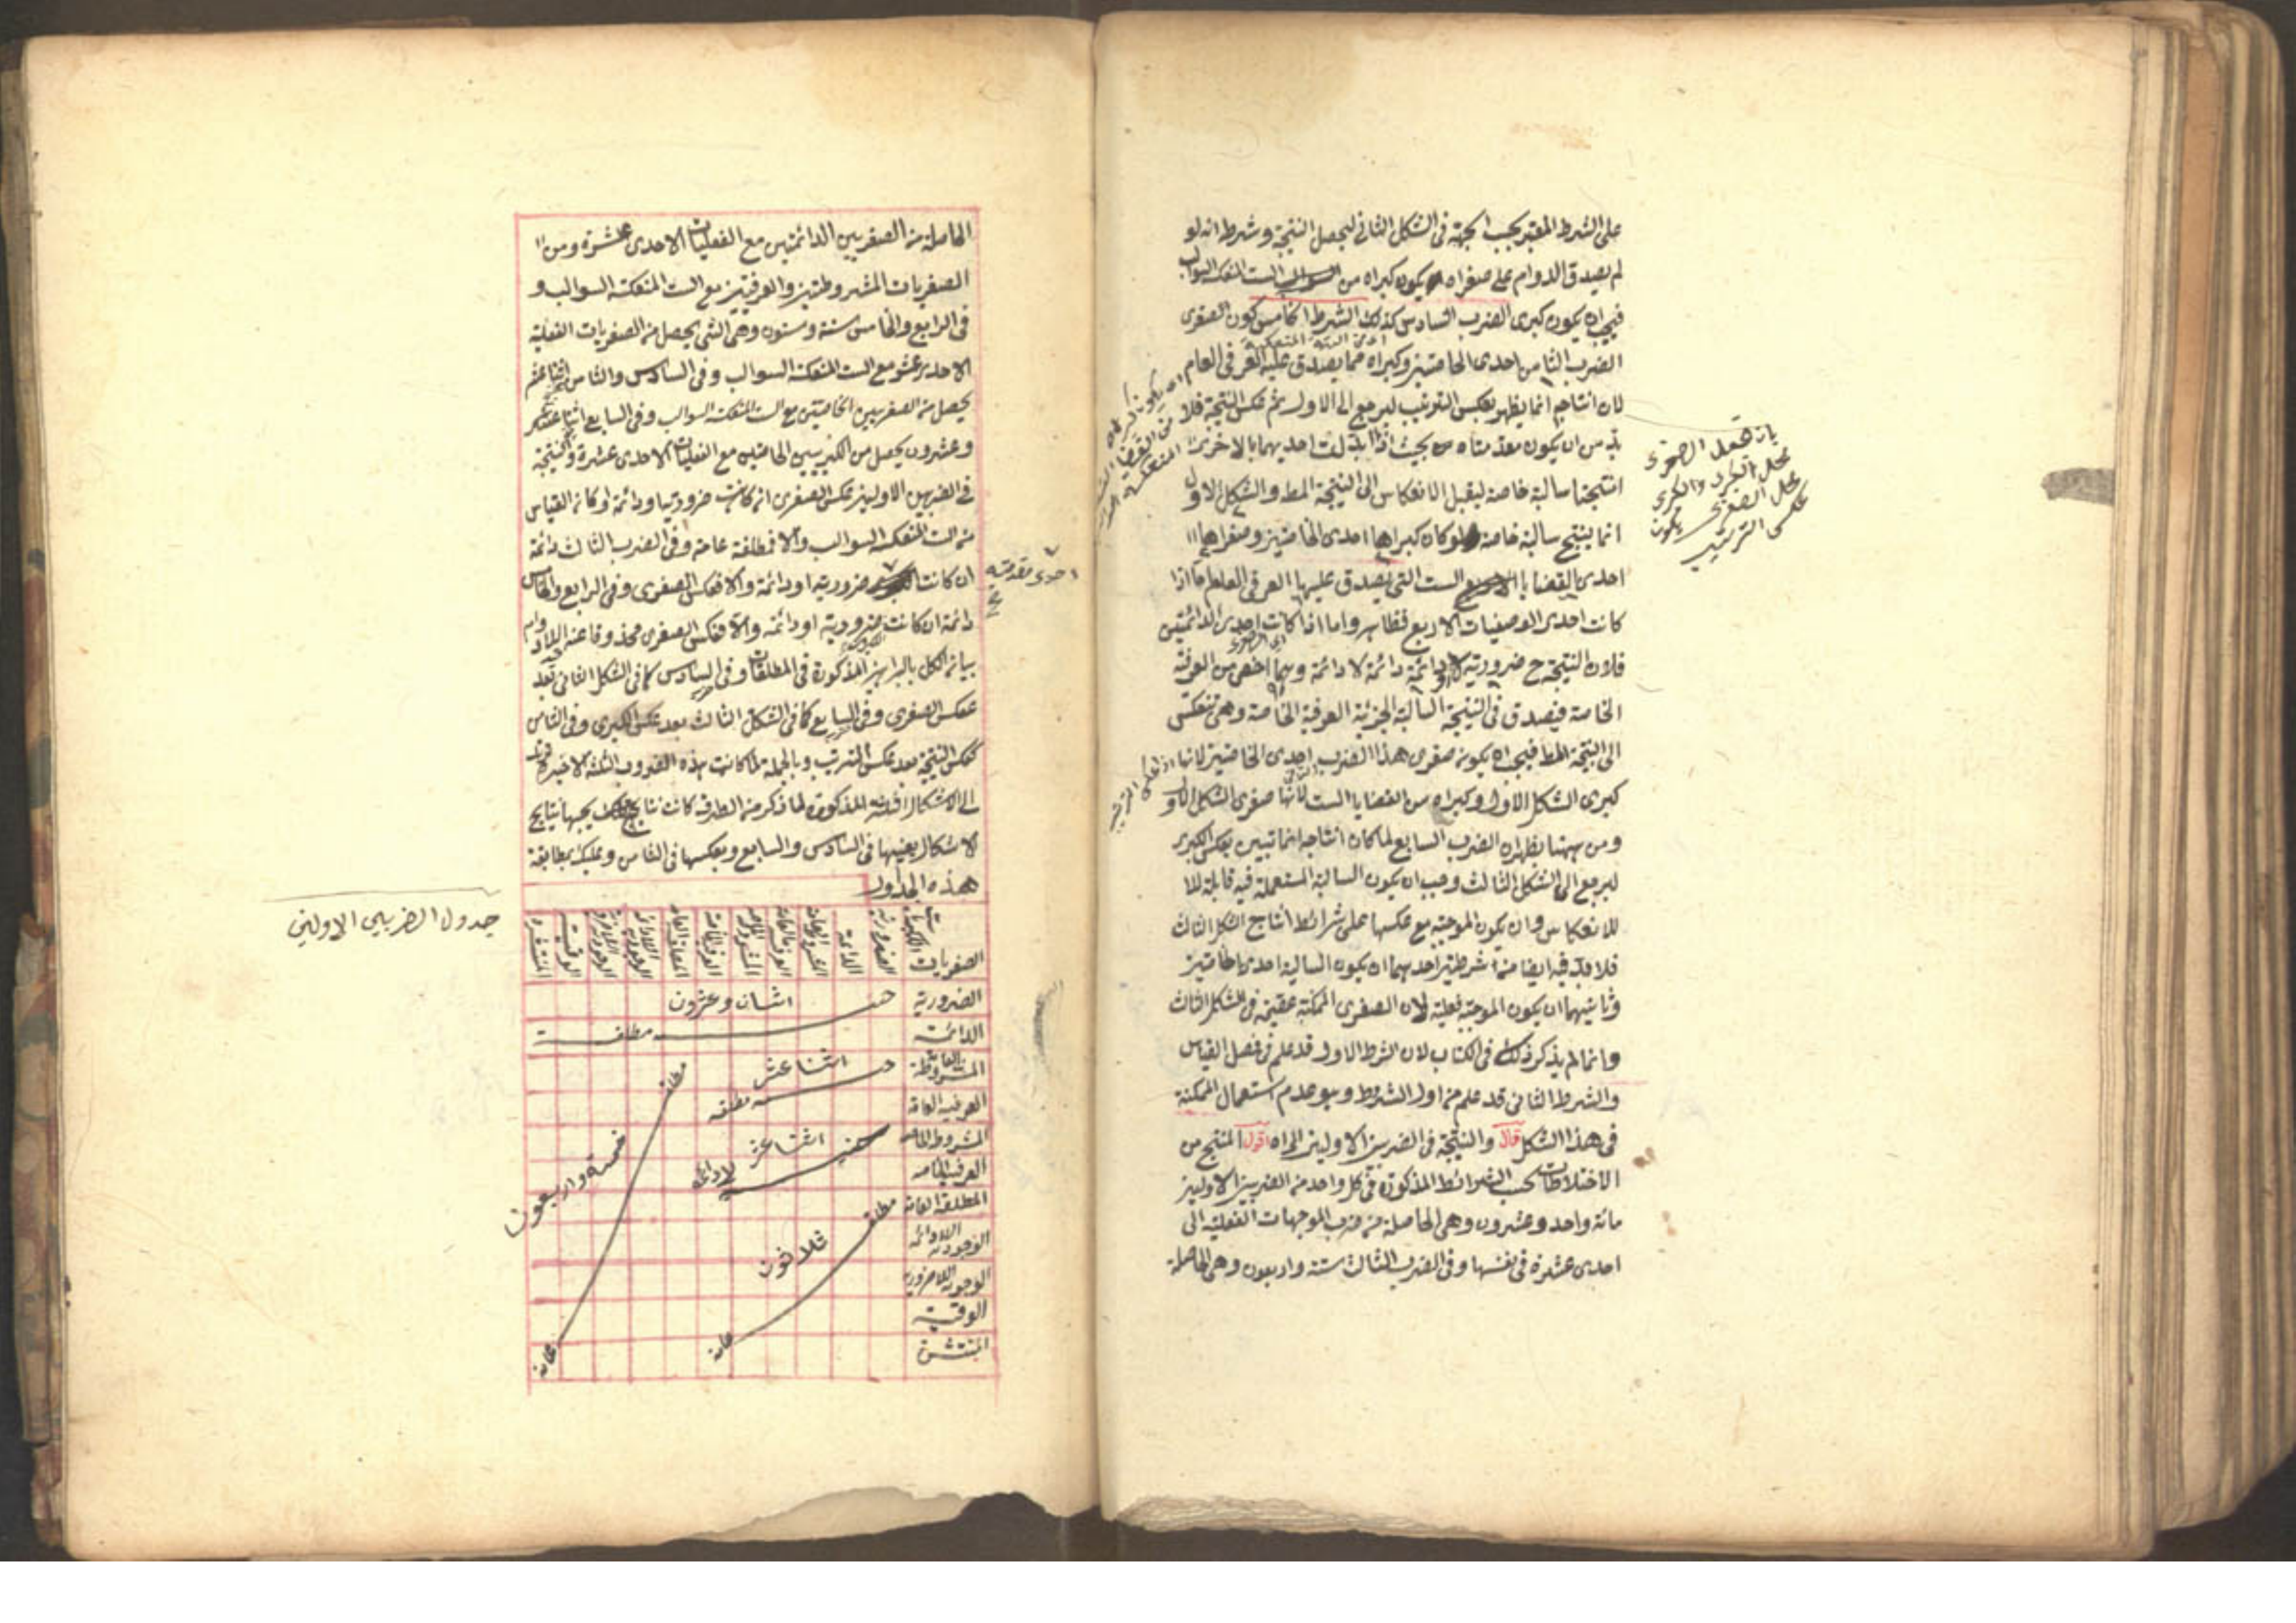 على الشرط المعتبر بحسب الجهة فى الشكل الثانى ليحصل النتيجة وشرطه انه لو
لم يصدق الدوام على صغراه يكون كبراه من الست المنعكسة السوالب
فيجب ان يكون كبرى الضرب السادس كذلك الشرط الخامس كون الصغرى
الضرب الثامن احدى الخاصتين وكبراه مما يصدق عليه العرفى العام
لان انتاجه انما يظهر بعكس الترتيب ليرجع الى الاول ثم عكس النتيجة فلا
بد من ان يكون مقدمتاه بحيث اذا بدلت احديهما بالاخرى
انتجتا سالبة خاصة ليقبل الانعكاس الى النتيجة المط والشكل الاول
انما ينتج سالبة خاصة لو كان كبراها احدى الخاصتين وصغراها
احدى القضايا الست التى يصدق عليها العرفى العام اما اذا
كانت احدى الوصفيات الاربع فظاهر واما اذا كانت احدى الدائمتين
فلان النتيجة ح ضرورية لا دائمة او دائمة لا دائمة وهما اخص من العرفية
الخاصة فيصدق فى النتيجة السالبة الجزئية العرفية الخاصة وهى تنعكس
الى النتيجة المط فيجب ان يكون صغرى هذا الضرب احدى الخاصتين لانها
كبرى الشكل الاول وكبراه من القضايا الست لانها صغرى الشكل الاول
ومن ههنا يظهر ان الضرب السابع لما كان انتاجه انما تبين بعكس الكبرى
ليرجع الى الشكل الثالث وجب ان يكون السالبة المستعملة فيه قابلة للا
للانعكاس وان يكون الموجبة مع عكسها على شرائط انتاج الشكل الثالث
فلا بد فيه ايضا من شرطين احدهما ان يكون السالبة احدى الخاصتين
وثانيهما ان يكون الموجبة فعلية لان الصغرى الممكنة عقيمة فى الشكل الثالث
وانما لم يذكر ذلك فى الكتاب لان الشرط الاول قد علم فى فصل القياس
والشرط الثانى قد علم من اول الشروط وهو عدم استعمال الممكنة
فى هذا الشكل قال والنتيجة فى الضربين الاولين الى اه اقول المنتج من
الاختلاطات بحسب الشرائط المذكورة فى كل واحد من الضربين الاولين
مائة واحد وعشرون وهى الحاصلة من ضرب الموجهات الفعلية الى
احدى عشرة فى نفسها وفى الضرب الثالث ستة واربعون وهى الحاصلة
بان تجعل الصغرى
محل الكبرى والكبرى
محل الصغرى يكون
عكس الترتيب
الحاصلة من الصغريين الدائمتين مع الفعليات الاحدى عشرة ومن
الصغريات المشروطتين والعرفيتين مع الست المنعكسة السوالب و
فى الرابع والخامس ستة وستون وهى التى يحصل من الصغريات الفعلية
الاحدى عشر مع الست المنعكسة السوالب وفى السادس والثامن اثنا عشر
يحصل من الصغريين الخاصتين مع الست المنعكسة السوالب وفى السابع اثنا
وعشرون يحصل من الكبريين الخاصتين مع الفعليات الاحدى عشرة والنتيجة
فى الضربين الاولين عكس الصغرى ان كانت ضرورية او دائمة او كان القياس
من الست المنعكسة السوالب والا فمطلقة عامة وفى الضرب الثالث دائمة
ان كانت ضرورية او دائمة والا فعكس الصغرى وفى الرابع والخامس
دائمة ان كانت الكبرى ضرورية او دائمة والا فعكس الصغرى محذوفا عنه اللادوام
بيان الكل بالبراهين المذكورة فى المطلقات وفى السادس كما فى الشكل الثانى بعد
عكس الصغرى وفى السابع كما فى الشكل الثالث بعد عكس الكبرى وفى الثامن
كعكس النتيجة بعد عكس الترتيب وبالجملة لما كانت هذه الضروب الثلثة الاخيرة
الى الاشكال الثلثة المذكورة لما ذكر من الطرق كانت نتايج
الاشكال بعينها فى السادس والسابع وبعكسها فى الثامن وعليك بمطالعة
هذه الجداول
احدى مقدمتيه
جدول الضربين الاولين
الكبريات
الصغريات
الضرورية
الدائمة
المشروطة العامة
العرفية العامة
المشروطة الخاصة
العرفية الخاصة
المطلقة العامة
الوجودية اللادائمة
الوجودية اللاضرورية
الوقتية
المنتشرة
الضرورية
الدائمة
المشروطة العامة
العرفية العامة
المشروطة الخاصة
العرفية الخاصة
المطلقة العامة
الوجودية اللادائمة
الوجودية اللاضرورية
الوقتية
المنتشرة
اثنان وعشرون
مطلقة
اثنا عشر
مطلقة
اثنا عشر
لا دائمة
مطلقة
خمسة واربعون
عامة
مطلقة
ثلاثون
عامة